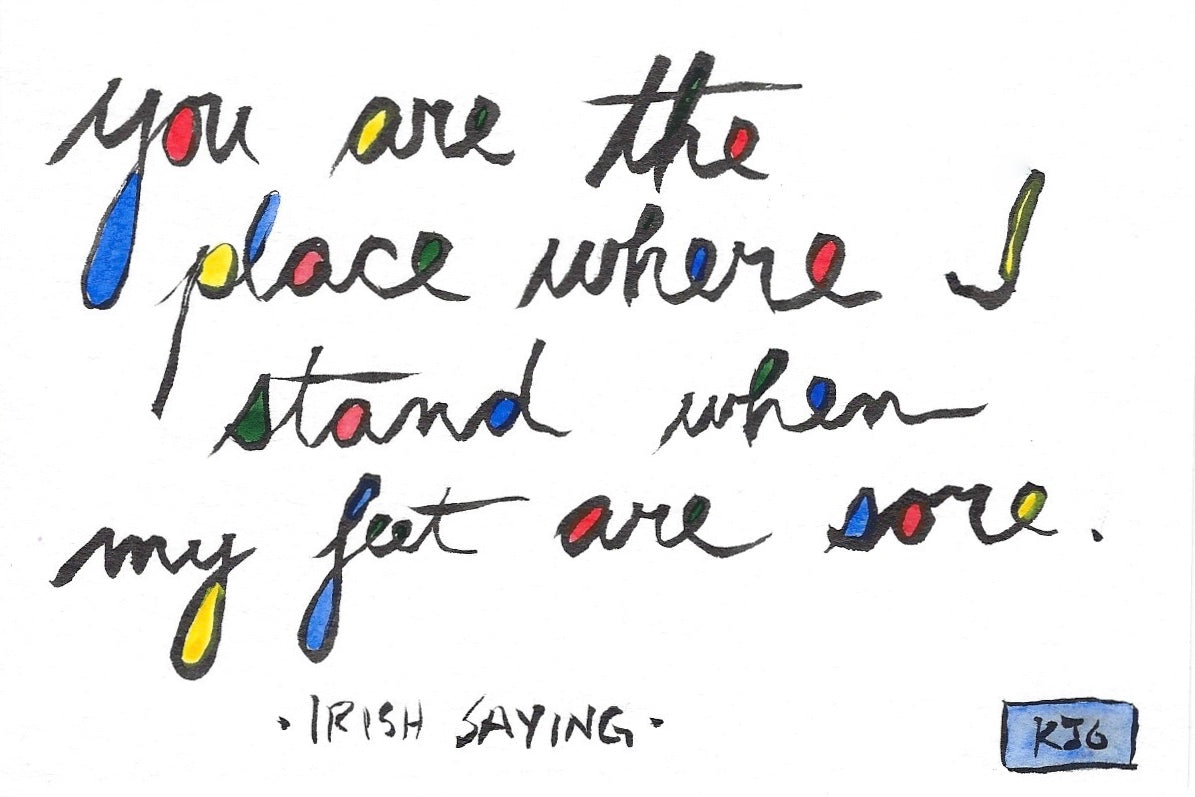 you are the
place where I
stand when
my feet are sore.
· IRISH SAYING ·
KJG